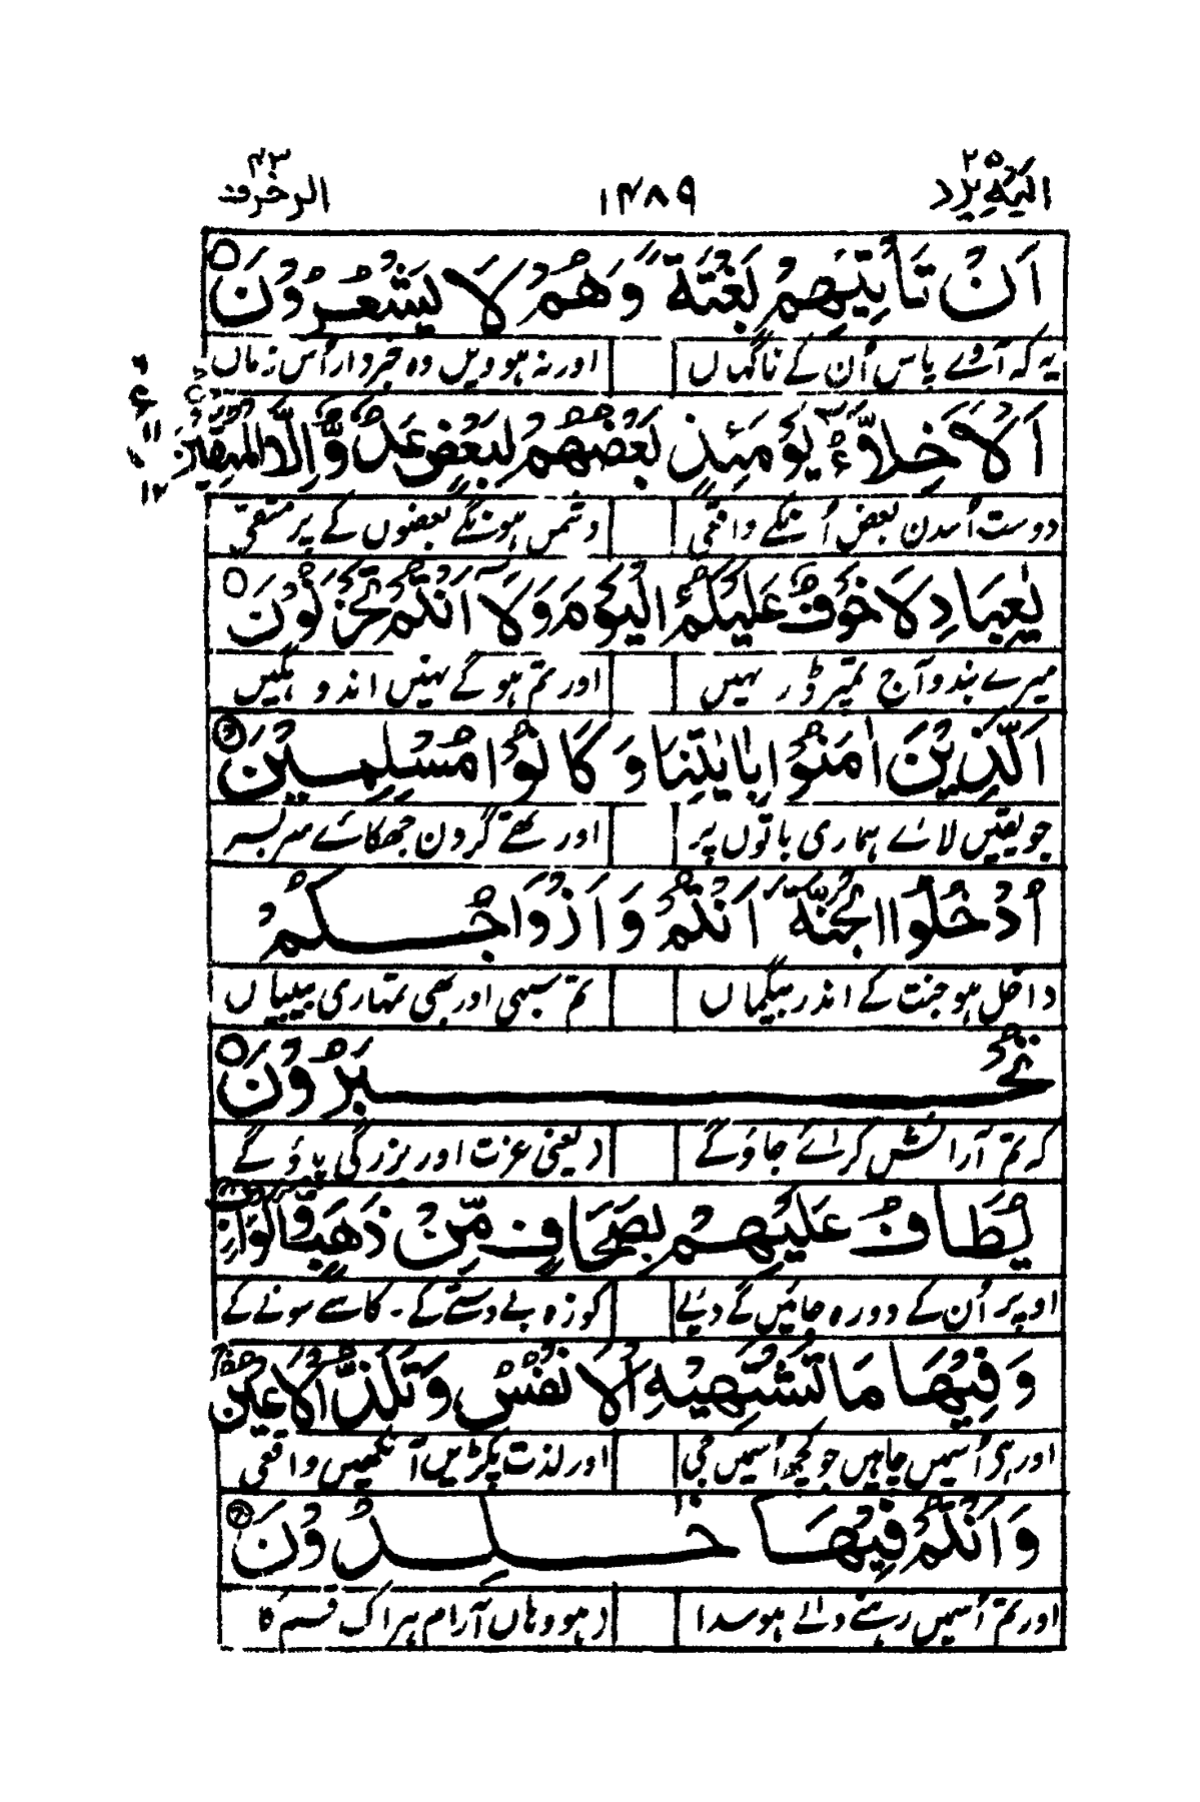 الیہ یرد ۲۵
۱۴۸۹
الزخرف ۴۳
اَنْ تَاْتِيَهُمْ بَغْتَةً وَّهُمْ لَا يَشْعُرُوْنَ ○
یہ کہ آوے پاس اُن کے ناگہاں اور نہ ہوویں وہ خبردار اُس زماں
اَلْاَخِلَّآءُ يَوْمَئِذٍۢ بَعْضُهُمْ لِبَعْضٍ عَدُوٌّ اِلَّا الْمُتَّقِيْنَ
دوست اُسدن بعض اُنکے واقعی دشمن ہونگے بعضوں کے پر متقی
ع ۱۱ ۱۲
يٰعِبَادِ لَا خَوْفٌ عَلَيْكُمُ الْيَوْمَ وَلَآ اَنْتُمْ تَحْزَنُوْنَ ○
میرے بندو آج تمپر ڈر نہیں اور تم ہوگے نہیں اندوہگیں
اَلَّذِيْنَ اٰمَنُوْا بِاٰيٰتِنَا وَكَانُوْا مُسْلِمِيْنَ
جو یقیں لائے ہماری باتوں پر اور تھے گردن جھکائے سربسر
اُدْخُلُوا الْجَنَّةَ اَنْتُمْ وَاَزْوَاجُكُمْ
داخل ہو جنت کے اندر بیگماں تم سبھی اور بھی تمہاری بیبیاں
تُحْبَرُوْنَ ○
کہ تم آرائش کرائے جاؤگے یعنی عزت اور بزرگی پاؤگے
يُطَافُ عَلَيْهِمْ بِصِحَافٍ مِّنْ ذَهَبٍ وَّاَكْوَابٍ
اوپر اُن کے دورہ جائیں گے دیے کوزہ بے دستے کے۔ کاسے سونے کے
وَفِيْهَا مَا تَشْتَهِيْهِ الْاَنْفُسُ وَتَلَذُّ الْاَعْيُنُ
اور ہی اُسمیں چاہیں جو کچھ اُسمیں جی اور لذت پکڑیں آنکھیں واقعی
وَاَنْتُمْ فِيْهَا خٰلِدُوْنَ
اور تم اُسمیں رہنے والے ہو سدا ہو وہاں آرام ہر اک قسم کا